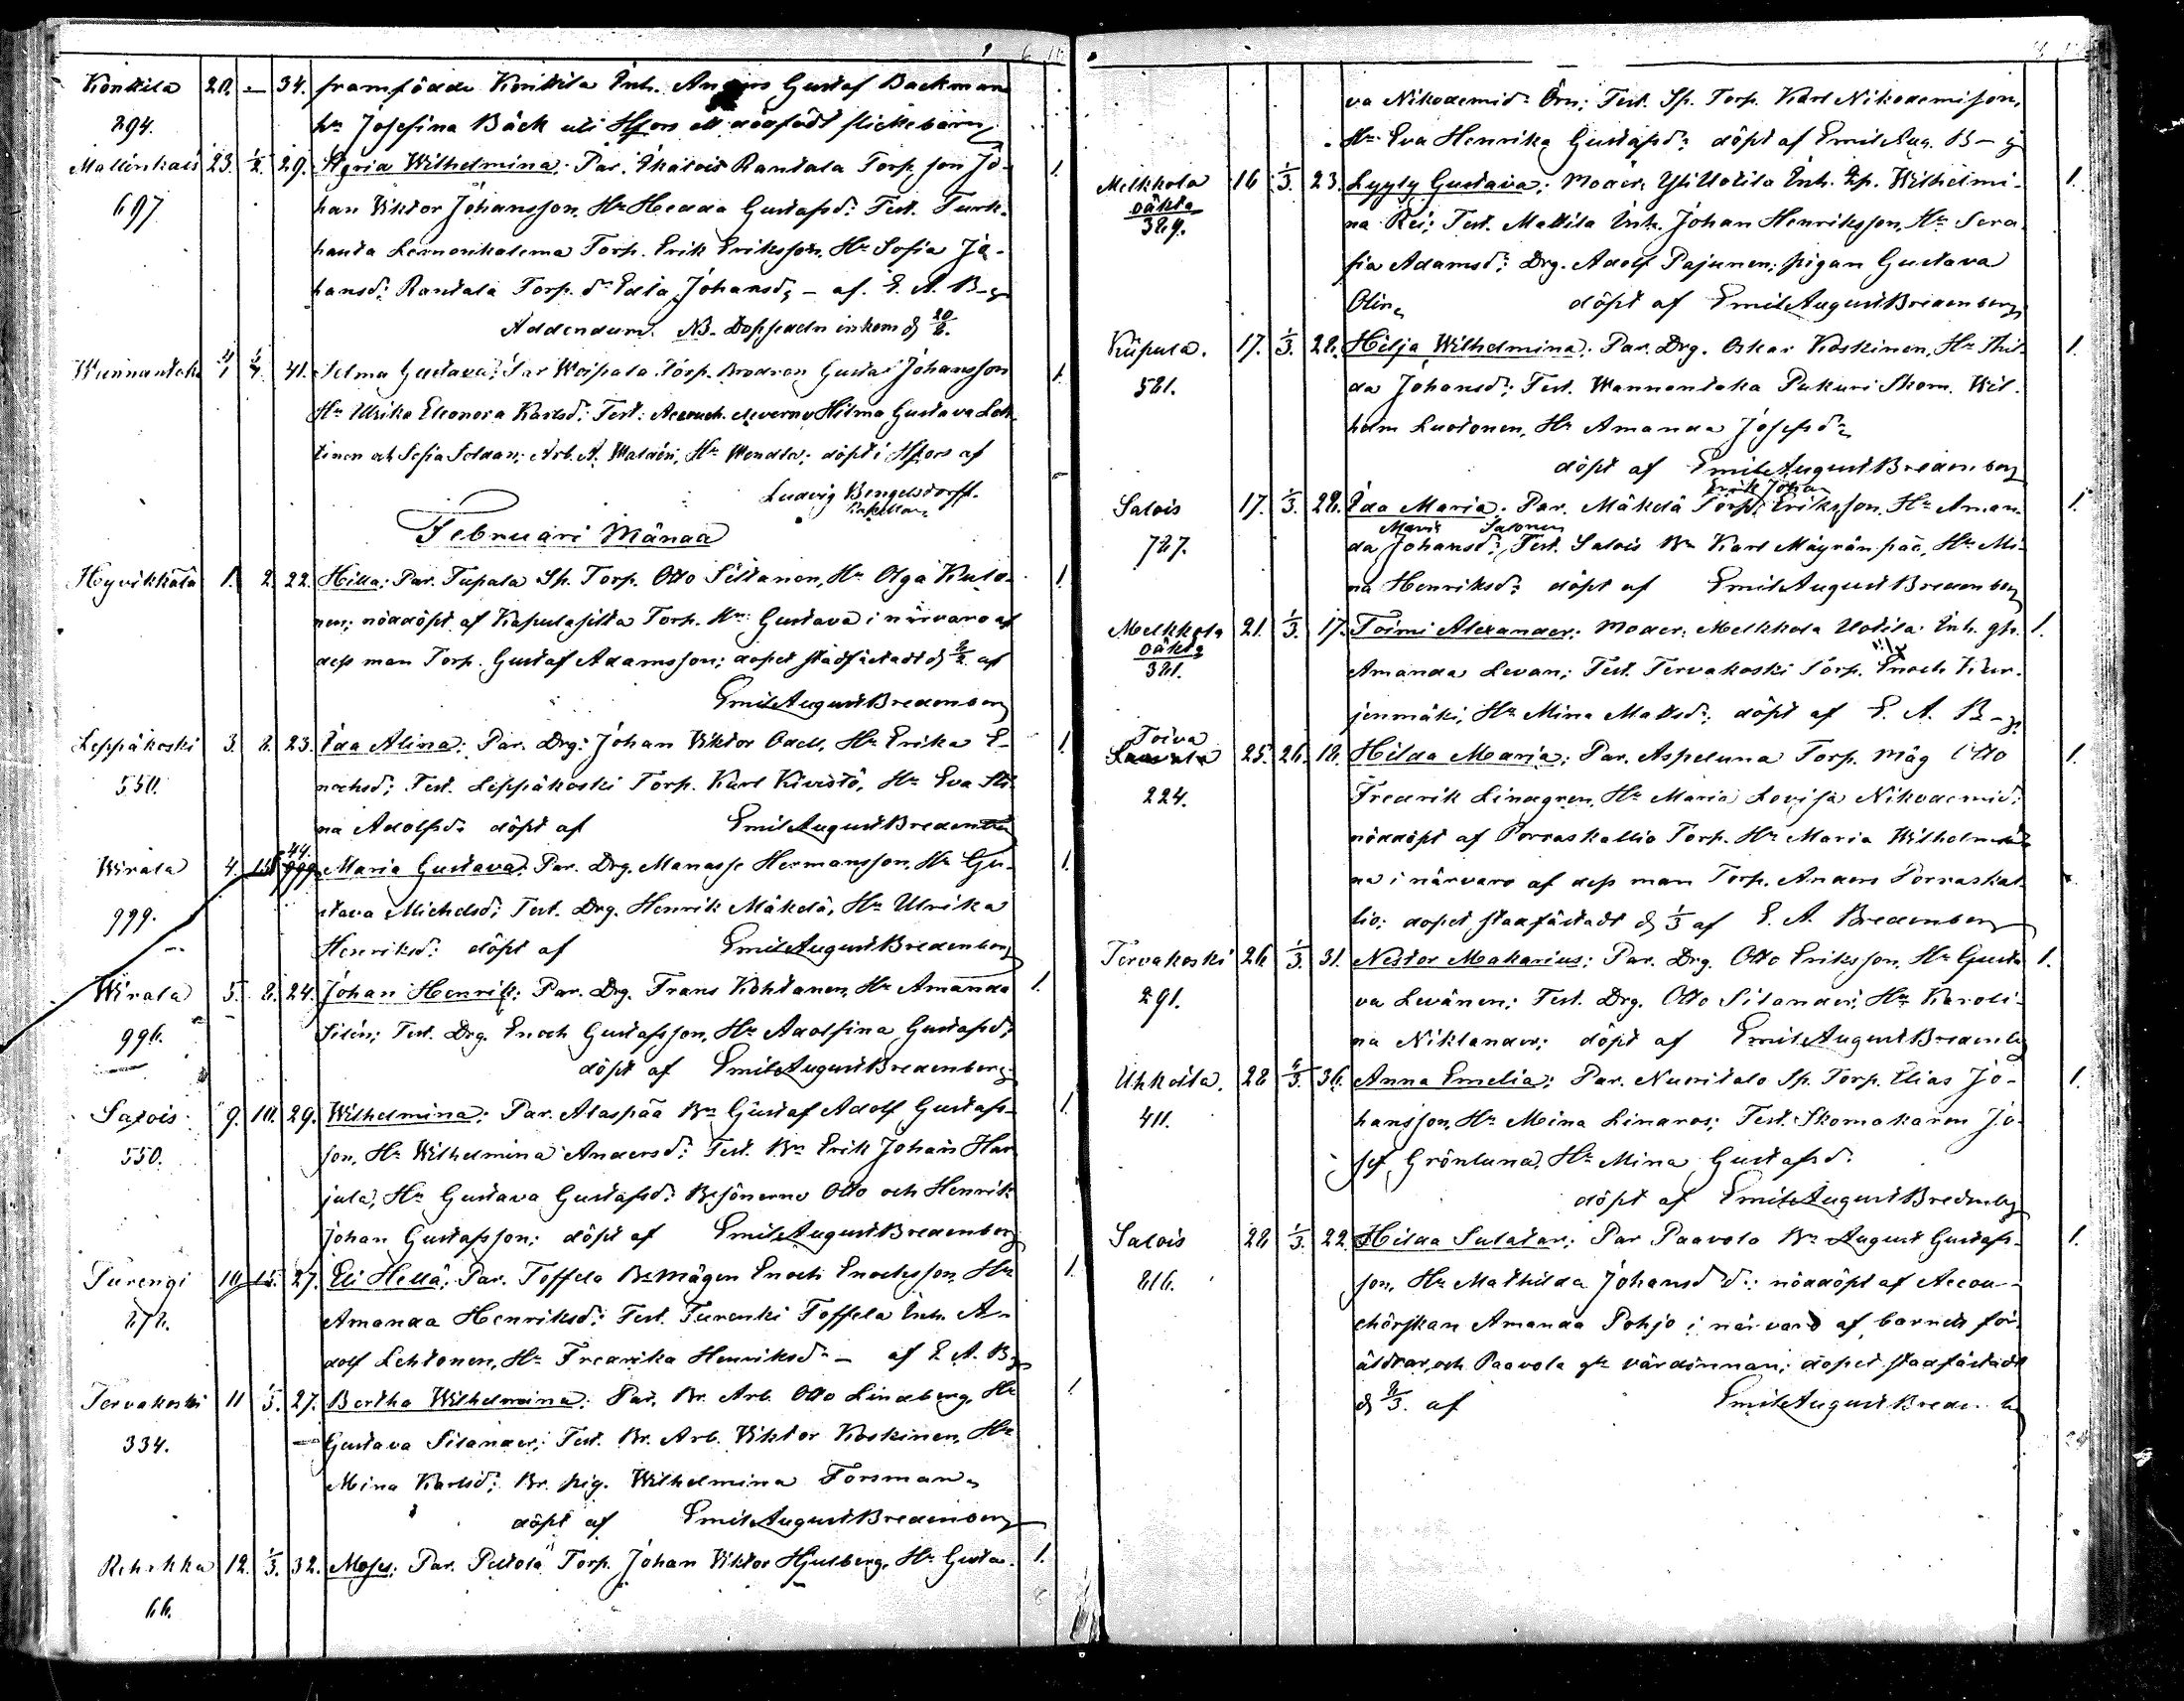 Konkila 20. — 34. framfödde Konkila Inh. Gustaf Backman
294. hn Josefina Bäck uti Hfors ett dödfödt flickebarn
Mallinkais 23. 1/2. 29. Wilhelmina; Par. Rantala Torp. son Jo- 1.
697. han Viktor Johansson, Hu Hedda Gustafsd:r Test. Turk-
hauta Torp. Erik Eriksson, Hu Sofia Jo-
hansd:r Rantala Torp. dr Edla Johansd:r — af E. A. B—g
Addendum. NB. Dopsedeln inkom d. 20/8.
41. Selma Gustava; Par. Torp. Brodren Gustaf Johansson 1.
Hu Ulrika Eleonora Karlsd:r Test. Hilma Gustava Leh-
tinen och Sofia Arb. A. Waldén, Hu Wendla; döpt i Hfors af
Ludvig Bengelsdorff.
Februari Månad
Hyvikkälä 1. 2. 22. Hilla; Par. Tupala Sp. Torp. Otto Siltanen, Hu Olga 1.
nen; nöddöpt af Torp. Hu Gustava i närvaro af
dess man Torp. Gustaf Adamsson; dopet stadfästadt d. af
Emil August Bredenberg
Leppäkoski 3. 8. 23. Ida Alina; Par. Drg. Johan Viktor Hu Erika E- 1.
550. nochsd:r Test. Leppäkoski Torp. Karl Kivistö, Hu Eva Sti-
na Adolfsd:r döpt af Emil August Bredenberg
44.
Wirala 4. Maria Gustava; Par. Drg. Manasse Hermansson, Hu Gu- 1.
999. stava Michelsd:r Test. Drg. Henrik Mäkelä, Hu Ulrika
Henriksd:r döpt af Emil August Bredenberg
Wirala 5. 8. 24. Johan Henrik; Par. Drg. Frans Kohtanen, Hu Amanda 1.
996. Silén; Test. Drg. Enoch Gustafsson, Hu Adolfina Gustafsd:r
döpt af Emil August Bredenberg
Salois 9. 10. 29. Wilhelmina; Par. Alaspää Bn Gustaf Adolf Gustafs- 1.
550. son, Hu Wilhelmina Andersd:r Test. Bn Erik Johan Har-
jula, Hu Gustava Gustafsd:r Bsönerne Otto och Henrik
Johan Gustafsson; döpt af Emil August Bredenberg
Turengi 10. 15. 27. Eli Hellä; Par. Toffela Bmågen Enoch Enochsson, Hu 1.
Amanda Henriksd:r Test. Turenki Toffela Inh. A-
dolf Lehtonen, Hu Fredrika Henriksd:r — af E. A. Bg
Tervakoski 11 27. Bertha Wilhelmina; Par. Br. Arb. Otto Lindberg, Hu 1.
334. Gustava Silander; Test. Br. Arb. Viktor Koskinen, Hu
Mina Karlsd:r Br. pig. Wilhelmina Forsman
döpt af Emil August Bredenberg
12. 1/3. 32. Moses; Par. Peltola Torp. Johan Viktor Hjulberg, Hu Gusta- 1.
66.
va Nikodemid:r Örn; Test. Sp. Torp. Karl Nikodemisson,
Hu Eva Henrika Gustafsd:r döpt af Emil Aug. B—g
Melkkola 16 1/3. 23. Lyyly Gustava; Moder, Yli Uotila Inh. Wilhelmi- 1.
329. na Rei; Test. Mattila Inh. Johan Henriksson, Hu Sera-
fia Adamsd:r Drg. Adolf Pajunen; pigan Gustava
Olin döpt af Emil August Bredenberg
Kiipula. 17. 1/3. 28. Hilja Wilhelmina; Par. Drg. Oskar Koskinen, Hu Thil- 1.
581. da Johansd:r Test. Wannantaka Pukuri Skom. Wil-
helm Luotonen, Hu Amanda Josefsd:r
döpt af Emil August Bredenberg
Erik Johan
Salois 17. 1/3. 28. Ida Maria; Par. Mäkelä Torp. Eriksson, Hu Aman- 1.
Maria Salonen
727. da Johansd:r Test. Salois Bn Karl Mäyränpää, Hu Mi-
na Henriksd:r döpt af Emil August Bredenberg
Melkkola 21. 1/3. 17. Toimi Alexander; Moder, Melkkola Uotila Inh. 1.
321. Amanda Levan; Test. Tervakoski Torp. Enoch Kur-
jenmäki, Hu Mina Mattsd:r döpt af E. A. B—g
Toiva
25. 26. 18. Hilda Maria; Par. Aspelund Torp. Måg Otto 1.
224. Fredrik Lindgren, Hu Maria Lovisa Nikodemid:r
nöddöpt af Porraskallio Torp. Hu Maria Wilhelmi-
na i närvaro af dess man Torp. Anders Porraskal-
lio; dopet stadfästadt d. 1/3 af E. A. Bredenberg
Tervakoski 26 1/3. 31. Nestor Makarius; Par. Drg. Otto Eriksson, Hu Gusta- 1.
291. va Levänen; Test. Drg. Otto Silander, Hu Karoli-
na Niklander; döpt af Emil August Bredenberg
Uhkoila. 28 36. Anna Emelia; Par. Nuuitalo Sp. Torp. Elias Jo- 1.
411. hansson, Hu Mina Linaros; Test. Skomakaren Jo-
sef Grönlund, Hu Mina Gustafsd:r
döpt af Emil August Bredenberg
Salois 28 1/3. 22. Hilda Salatar; Par. Paavola Bn August Gustafs- 1.
816. son, Hu Mathilda Johansd:r; nöddöpt af Accou-
chörskan Amanda Pohjo i närvaro af barnets för-
äldrar och Paavola värdinnan; dopet stadfästadt
d. af Emil August Bredenberg